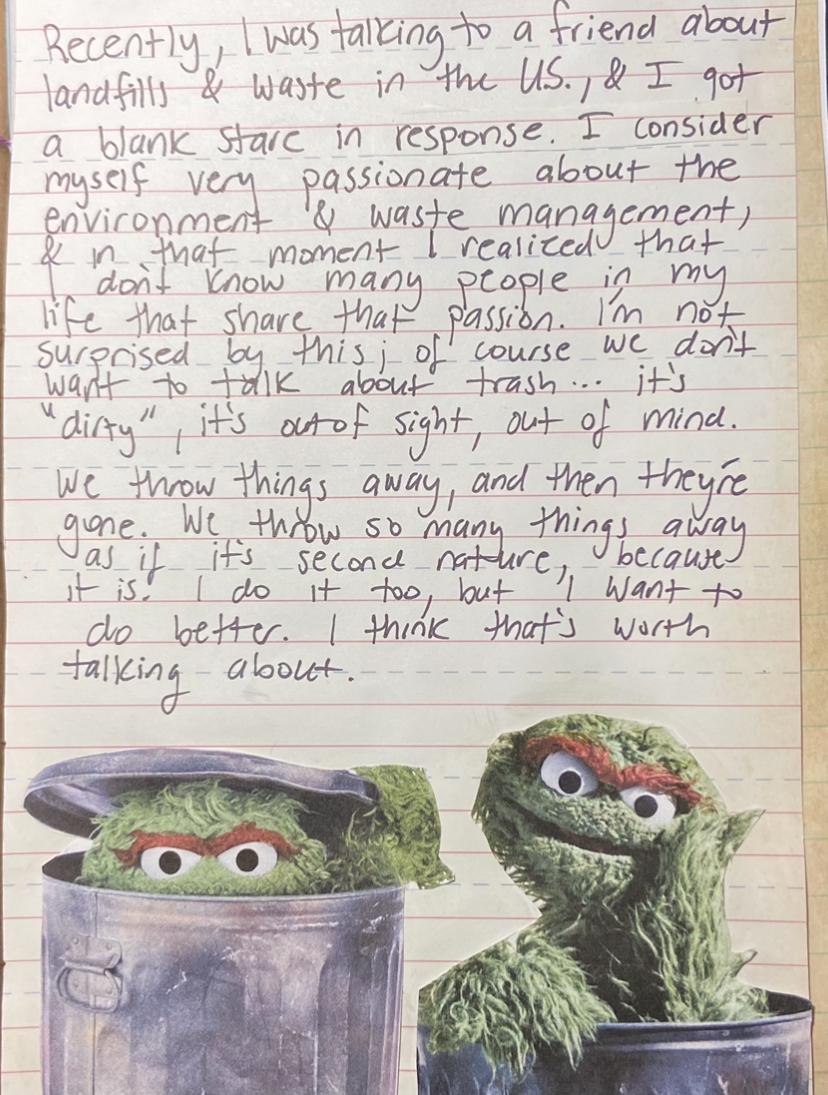 Recently, I was talking to a friend about
landfills & waste in the US., & I got
a blank stare in response. I consider
myself very passionate about the
environment & waste management,
& in that moment I realized that
I don't know many people in my
life that share that passion. I'm not
surprised by this; of course we don't
want to talk about trash... it's
"dirty", it's out of sight, out of mind.
We throw things away, and then they're
gone. We throw so many things away
as if it's second nature, because
it is. I do it too, but I want to
do better. I think that's worth
talking about.